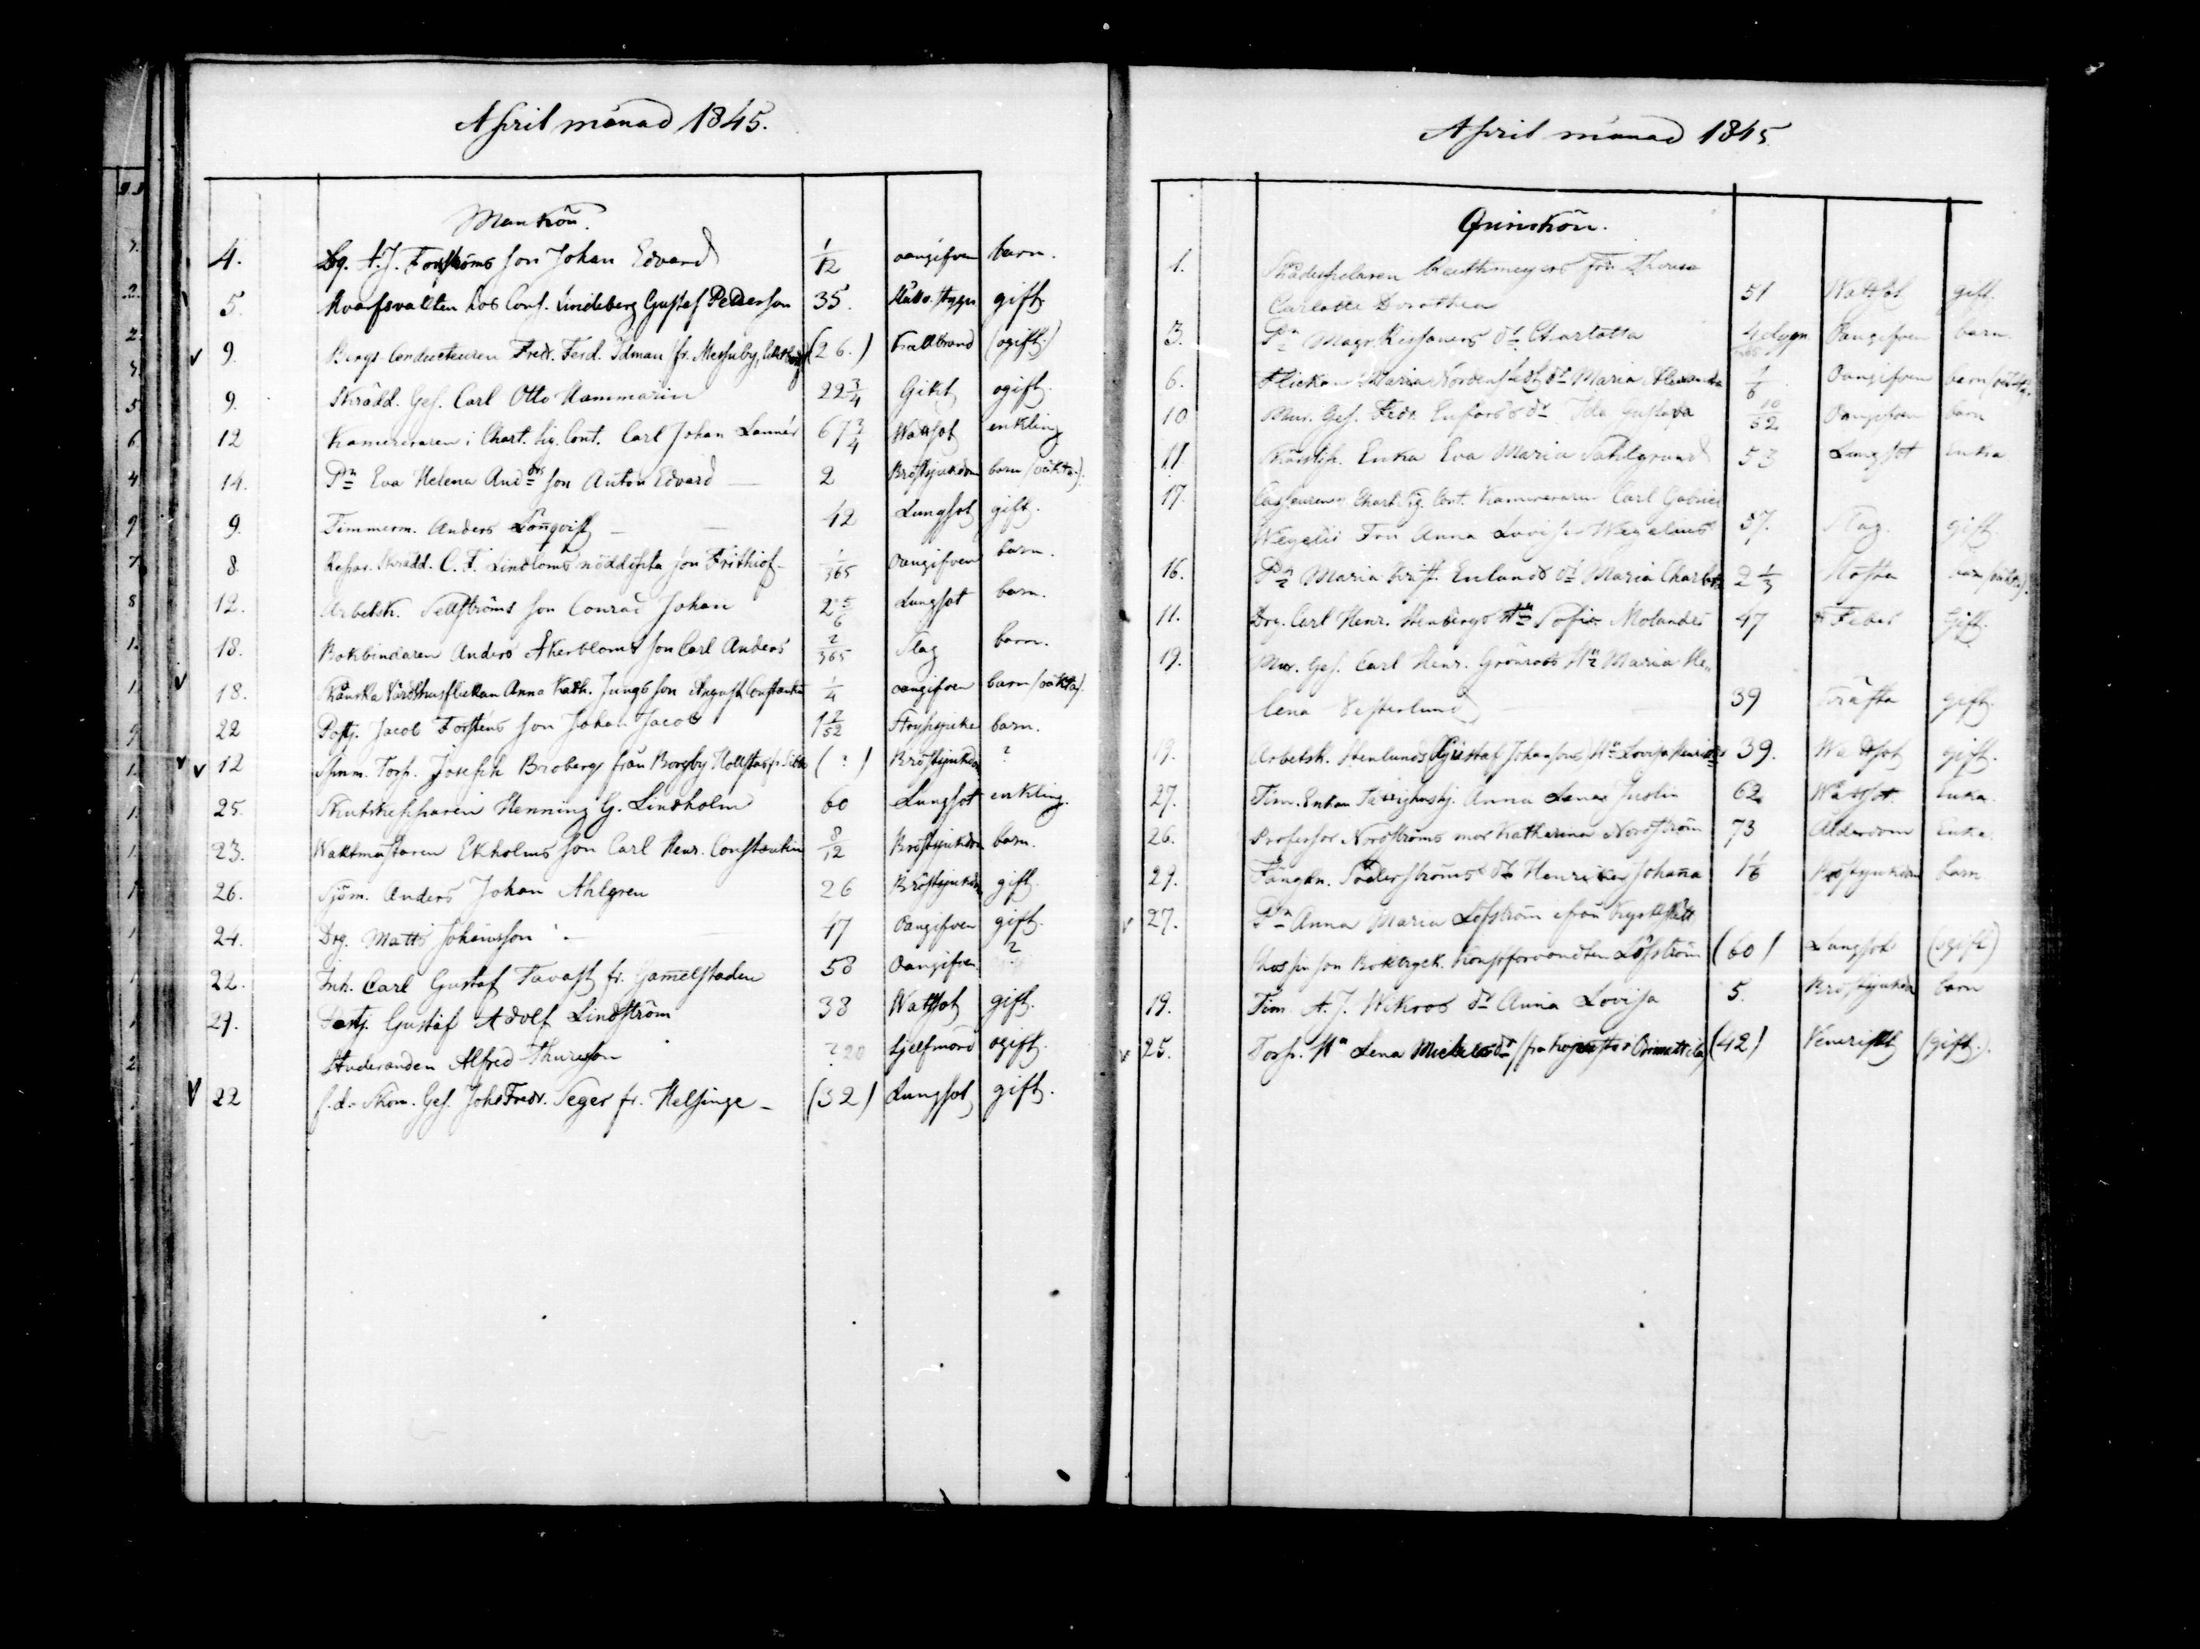 April månad 1845.
Mankön.
4. Drg. A. J. Forsströms son Johan Edvard 1/12 oangifven barn.
5. hos Cons. Lindeberg Gustaf Petterson 35. Håll o. stygn gift
v 9. Bergs Conducteuren Fredr. Ferd. Idman fr. Messuby, (26.) Kallbrand (ogift)
9. Skrädd. Ges. Carl Otto Hammarin 22 3/4 Gikt ogift.
12 Kamereraren i Chart. Sig. Cont. Carl Johan Lannér 67 3/4 Wattsot enkling
14. Pn Eva Helena And:drs son Anton Edvard — 2 Bröstsjukdom barn (oäkta).
9. Timmerm. Anders Lönqvist — — 42 Lungsot gift.
8. Repar. Skrädd. C. F. Lindloms nöddöpta son Frithiof — 1/365 oangifven barn.
12. Arbetsk. Sellströms son Conrad Johan 2 5/6 Lungsot barn.
18. Bokbindaren Anders Åkerbloms son Carl Anders 2/365 Slag barn.
v 18. Wärdshusflickan Anna Kath. Jungs son August Constantin 1/4 oangifven barn (oäkta).
22 Postj. Jacob Forsténs son Johan Jacob 1 2/52 Strypsjuka barn.
v v 12 Torp. Josefh Broberg från Borgby (?) Bröstsjukdom ?
25. Skutskepparen Henning G. Lindholm 60 Lungsot enkling.
23. Waktmästaren Ekholms son Carl Henr. Constantin 8/12 Bröstsjukdom barn.
26. Sjöm. Anders Johan Ahlgren 26 Bröstsjukdom gift.
24. Drg. Matts Johansson — — 47 Oangifven gift.
22. Inh. Carl Gustaf Tavast fr. Gamelstaden 58 Oangifven ?
27. Postj. Gustaf Adolf Lindström 38 Wattsot gift.
Studeranden Alfred Thuresson ? 20 Sjelfmord ogift.
v 22 f.d. Skom. Ges. Joh. Fredr. Seger fr. Helsinge — (32) Lungsot gift.
April månad 1845
Qvinkön.
1. Skådespelaren Fru Theresa
Carlotta Dorothea 51 Wattsot gift.
3. Pn Magr. dr Charlotta 4 dygn Oangifven barn.
6. Flickan Maria Nordenstedt dr Maria Alexandra 1/6 Oangifven barn (oäkta).
10 Mur. Ges. Fredr. Enfors dr Ida Gustava 10/52 Oangifven barn
11 Enka Eva Maria Sahlgrund 53 Lungsot Enka
17. Chart. Sig. Cont. Kamereraren Carl Gabriel
Wegelii Fru Anna Lovisa Wegelius 57. Slag. gift
16. Pn Maria Krist. Enlunds dr Maria Charlotta 2 1/3 barn (oäkta).
11. Drg. Carl Henr. Stenbergs Hu Sofia Molander 47 Feber Gift.
19. Mur. Ges. Carl Henr. Grönroos Hu Maria He-
lena Vesterlund 39 Kräfta gift.
19. Arbetsk. Stenlunds (Gustaf Johansons) Hu Lovisa 39. Wattsot gift.
27. Tim. Enkan Anna Lena Justin 62 Wattsot. Enka.
26. Professor Nordströms mor Katharina Nordström 73 Ålderdom Enka.
29. Fångkn. Söderströms dr Henrika Johana 1 1/6 Bröstsjukdom barn
v 27. Pn Anna Maria Löfström ifrån
son Boktryck. Konstförvandten Löfström (60) Lungsot (ogift)
19. Tim. A. J. Wikroos dr Anna Lovisa 5. Bröstsjukdom barn
v 25. Torp. Hu Lena Michelsdr (42) Veneriskt (gift.).